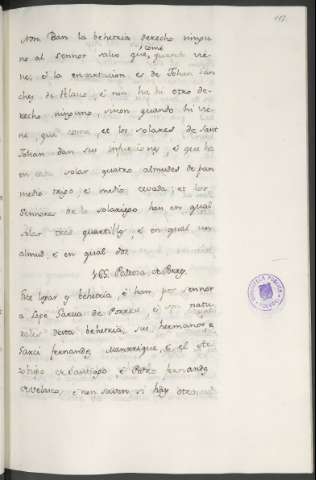 117
Non Dan la behetria derecho ningu
no al sennor salvo que come quando vie
ne, e la encartacion es de Johan san
chez de Velasco, e non ha hi otro de
recho ninguno, sinon quando hi vie
ne que coma, et los solares de Sant
Johan dan sus infurciones, e que ha
en cada solar quatro almudes de pan
medio trigo e medio cevada, et los
Sennores de lo solariego han en qual
solar tres quartillos, e en qual un
almud, e en qual dos
165. Padrosa, et Burg.
Este logar y behetria, e han por sennor
a Lope Garcia de Porres, e son natu
rales desta behetria, sus hermanos e
Garci fernandez Manrrique, e el
de Santiago, e Pedro fernandez
de Velasco, e non saven si hay otro